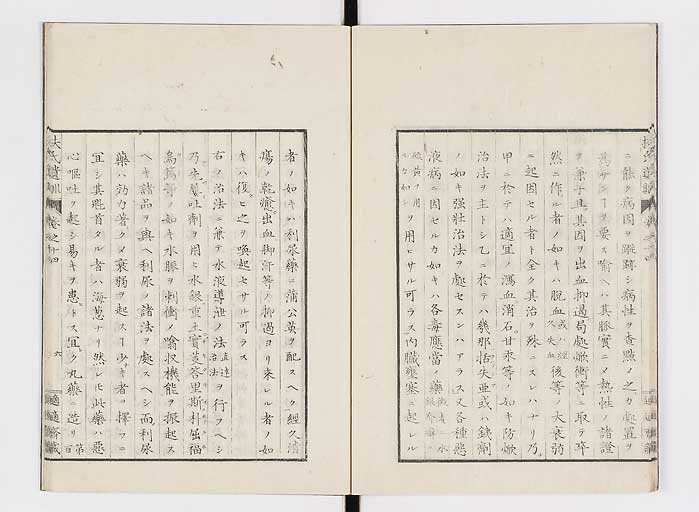 ニ能ク病因ヲ蹤跡シ病性ヲ査點ノ之カ處置ヲ
為サンヿヲ要ス喩ヘハ其脈實ニノ熱性ノ諸證
ヲ兼テ且其因ヲ出血抑遏局處焮衝等ニ取テ卒
然ニ作ル者ノ如キハ脱血後等ノ大衰弱
ニ起因セル者ト全ク其治ヲ殊ニスレハナリ乃
甲ニ於テハ適宜ノ瀉血消石甘汞等ノ如キ防焮
治法ヲ主トシ乙ニ於テハ幾那括失亜或ハ鉄劑
ノ如キ強壯治法ヲ處セスンハアラス又各種惡
液病ニ因セルカ如キハ各毒應當ノ藥
ヲ用ヒサル可ラス内臓壅塞ニ起レル
者ノ如キハ利尿藥ニ蒲公英ヲ配スヘク經久潰
瘍ノ乾癒出血脚汗等ノ抑遏ヨリ来レル者ノ如
キハ復ヒ之ヲ喚起セサル可ラス
右ノ治法ニ兼テ水液導泄ノ法直達治法ヲ行フヘシ
乃先ツ吐劑ヲ用ヒ水銀重土實芰答里斯朴屈福
烏篤等ノ如キ水脈ヲ刺衝ノ噏収機能ヲ振起ス
ヘキ諸品ヲ與ヘ利尿ノ諸法ヲ處スヘシ而利尿
藥ハ効力著クノ衰弱ヲ起スヿ少キ者ヲ擇フニ
宜シ其魁首タル者ハ海葱ナリ然レヒ此藥ハ惡
心嘔吐ヲ起シ易キヲ患トス宜ク丸藥ニ造リ
扶氏遺訓 巻之十四
六
適適齋藏